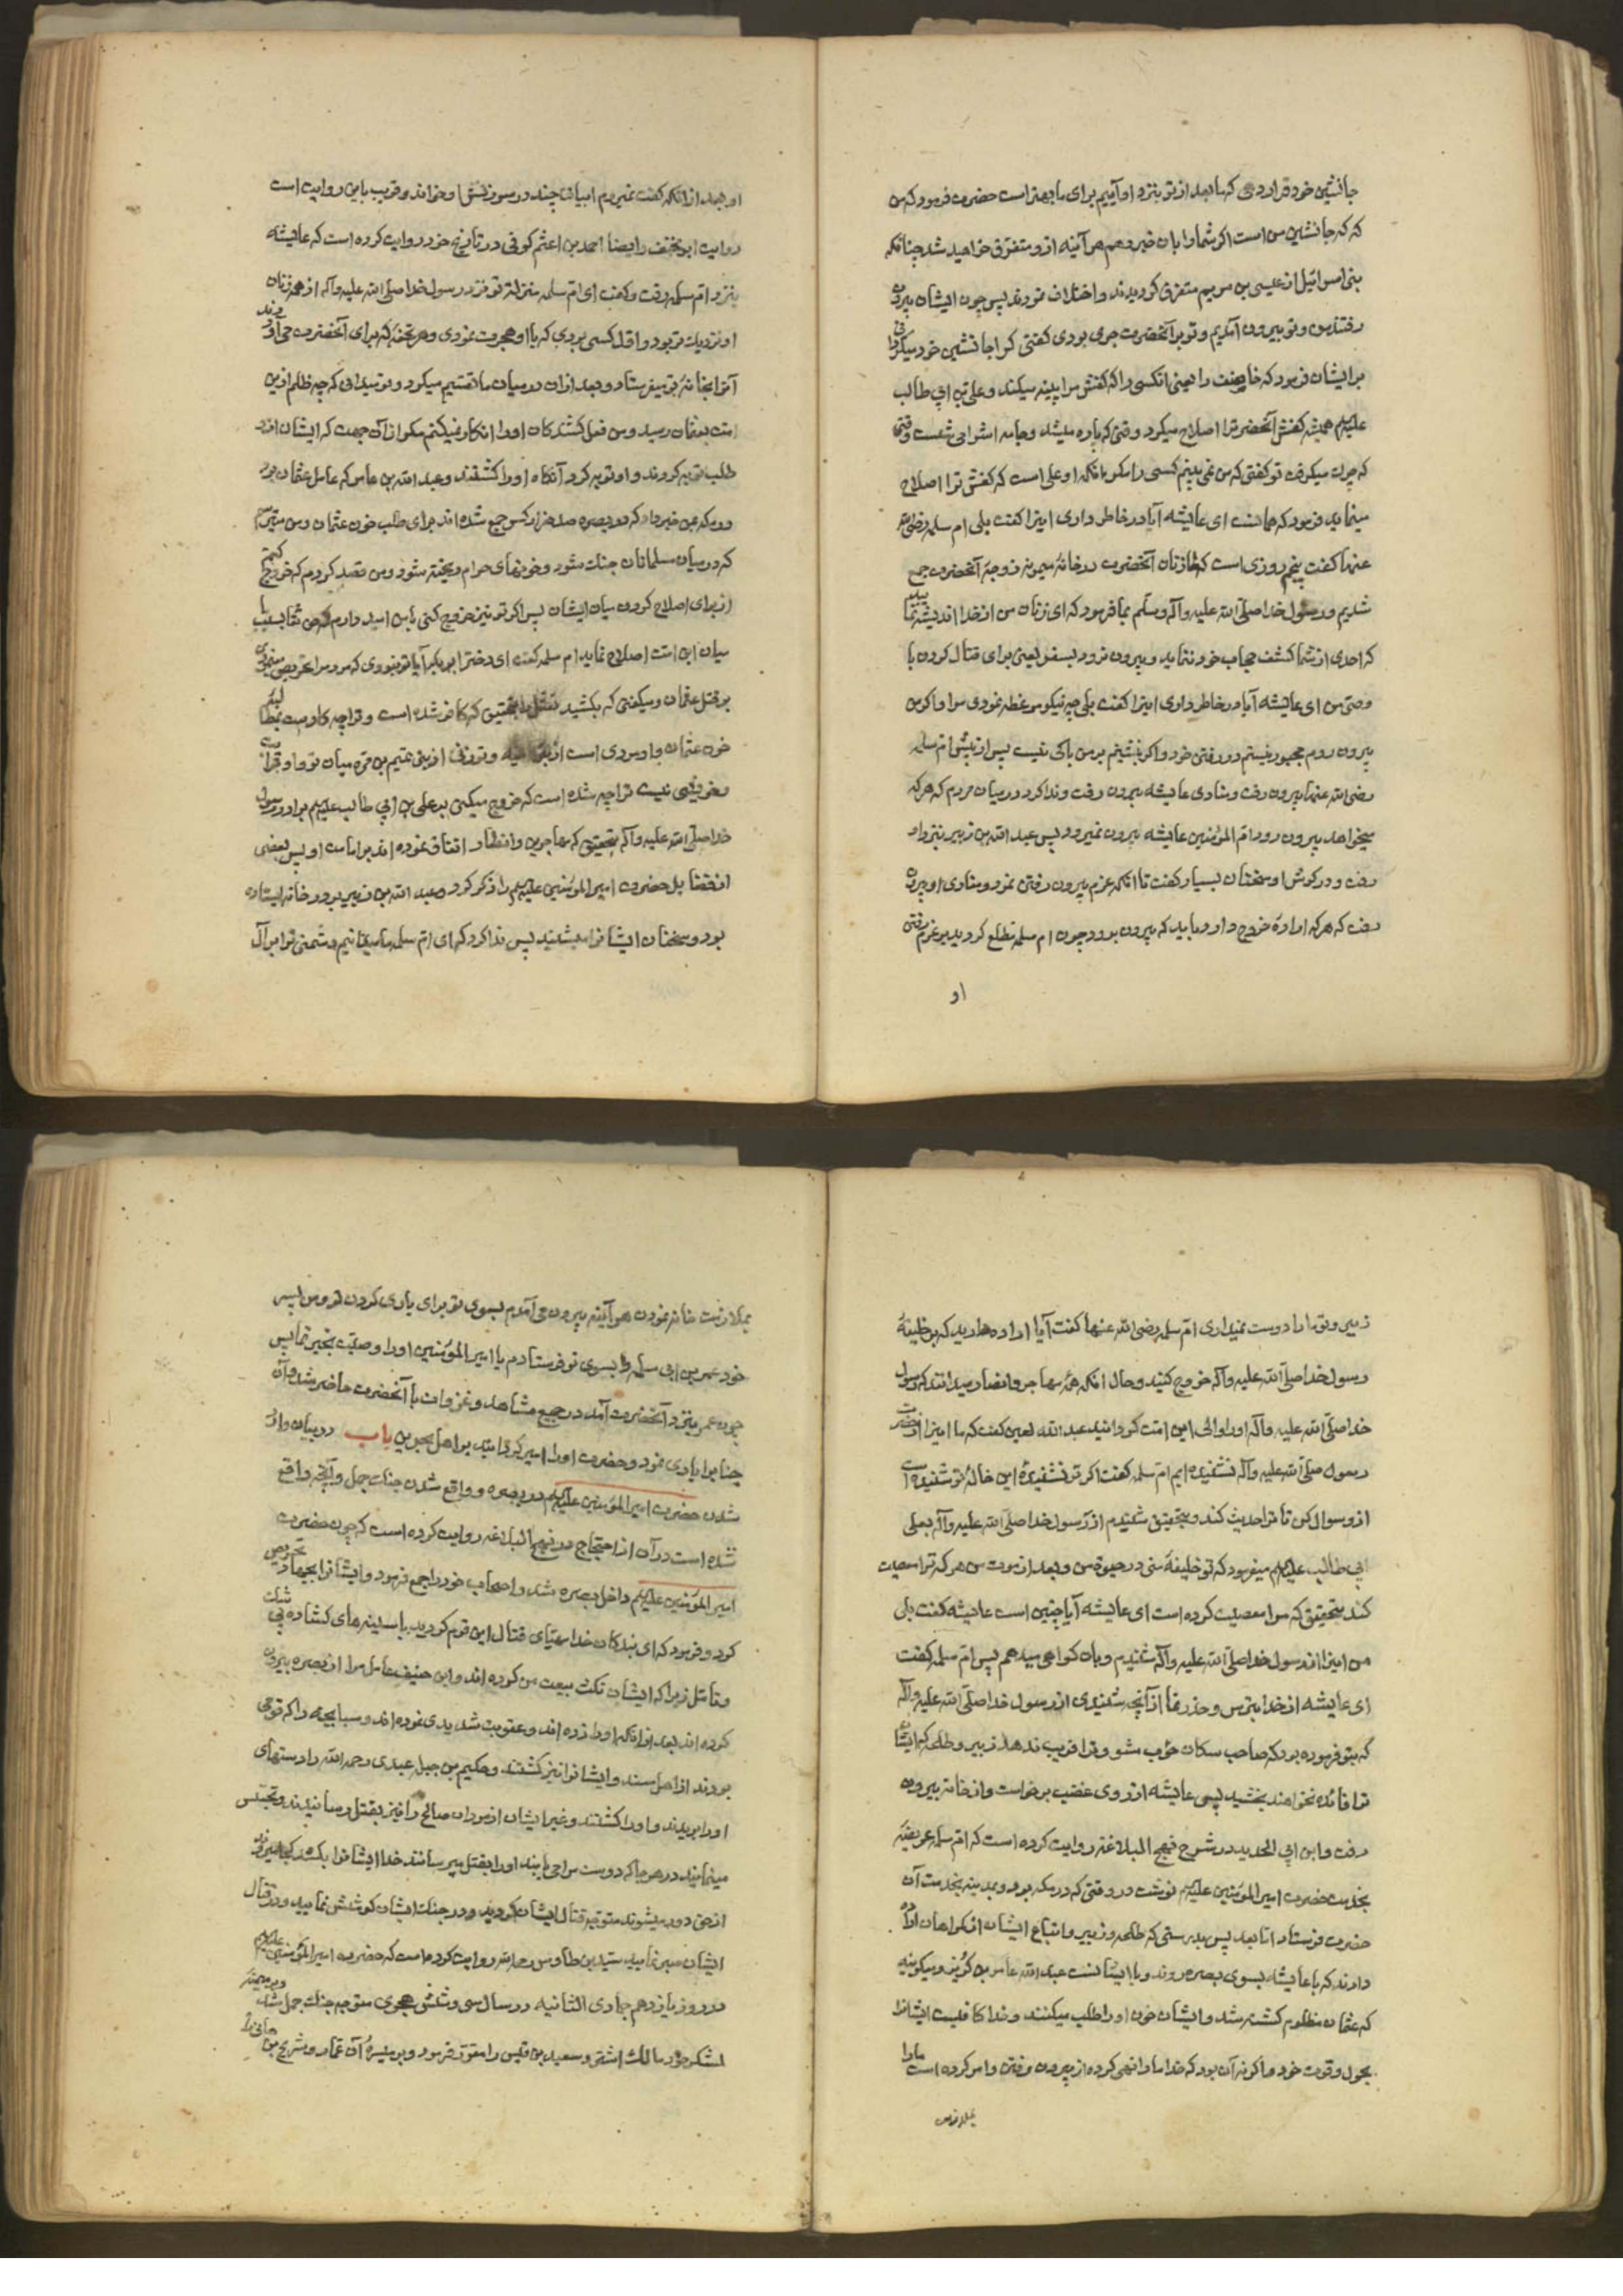 جانشین خود قرار دهی که ما بعد از تو بنزد او آییم برای ما بهتر است حضرت فرمود که من
که که جانشین من است اگر شما را بان خبر دهم هر آینه ازو متفرق خواهید شد چنانکه
بنی اسرائیل از عیسی بن مریم متفرق گردیدند و اختلاف نمودند پس چون ایشان بیرون
رفتند من و تو بیرون آمدیم و تو بر آنحضرت جری بودی گفتی کرا جانشین خود میگردانی
بر ایشان فرمود که خاصف را یعنی انکسی را که کفش مرا پینه میکند و علی بن ابی طالب
علیه‌السلم همیشه کفش آنحضرترا اصلاح میکرد وقتی که پاره میشد و جامه اش را می شست وقتی
که چرک میکرد تو گفتی که من نمی بینم کسی را مگر بانکه او علی است که کفش ترا اصلاح
مینماید فرمود که همانست ای عایشه آیا در خاطر داری اینرا گفت بلی ام سلمه رضی الله
عنها گفت پنجم روزی است که ما زنان آنحضرت در خانهٔ میمونه زوجهٔ آنحضرت جمع
شدیم و رسول خدا صلی الله علیه وآله وسلم بما فرمود که ای زنان من از خدا اندیشه نمایید
که احدی از شما کشف حجاب خود ننماید و بیرون نرود بسفر یعنی برای قتال کردن با
وصی من ای عایشه آیا در خاطر داری اینرا گفت بلی چه نیکو موعظه نمودی مرا و اگر من
بیرون روم مجبور نیستم در رفتن خود و اگر بنشینم بر من باکی نیست پس از پیش ام سلمه
رضی الله عنها بیرون رفت و منادی عایشه بیرون رفت و ندا کرد در میان مردم که هر که
میخواهد بیرون رود ام المؤمنین عایشه بیرون نمیرود پس عبد الله بن زبیر بنزد او
رفت و در گوش او سخنان بسیار گفت تا انکه عزم بیرون رفتن نمود و منادی او بیرون
رفت که هر که ارادهٔ خروج دارد باید که بیرون برود چون ام سلمه مطلع گردید بر عزم رفتن
او
او بعد از انکه گفت نمیروم ابیاتی چند در سرزنش او خواند و قریب باین روایت است
روایت ابو مخنف و ایضا احمد بن اعثم کوفی در تاریخ خود روایت کرده است که عایشه
بنزد ام سلمه رفت و گفت ای ام سلمه منزلهٔ تو نزد رسول خدا صلی الله علیه وآله از همه زنان
او نزدیک تر بود و اول کسی بودی که با او هجرت نمودی و هر تحفهٔ که برای آنحضرت می آوردند
آنرا بخانهٔ تو میفرستاد و بعد از ان در میان ما تقسیم میکرد و تو میدانی که چه ظلم ازین
امت بعثمان رسید و من فعل کشندگان او را انکار نمیکنم مگر از آن جهت که ایشان ازو
طلب توبه کردند و او توبه کرد آنگاه او را کشتند و عبد الله بن عامر که عامل عثمان بود
که در میان مسلمانان جنک شود و خونهای حرام ریخته شود و من قصد کردم که خروج کنم
از برای اصلاح کردن میان ایشان پس اگر تو نیز خروج کنی با من امید دارم که
میان این امت اصلاح نماید ام سلمه گفت ای دختر ابو بکر آیا تو نبودی که مردم را تحریص مینمودی
بر قتل عثمان و میگفتی که بکشید که کافر شده است و ترا چه کار است بطلب
خون عثمان و او مردی است از و تو زنی از بنی تیم بن مره میان تو و او قرابت
و خویشی نیست ترا چه شده است که خروج میکنی بر علی بن ابی طالب علیه‌السلم برادر رسول
خدا صلی الله علیه وآله بتحقیق که مهاجرین و انصار اتفاق نموده اند بر امامت او پس بعضی
از فضایل حضرت امیر المؤمنین علیه‌السلم را ذکر کرد و عبد الله بن زبیر بر در خانه ایستاده
بود و سخنان ایشانرا میشنید پس ندا کرد که ای ام سلمه ما میدانیم دشمنی ترا بر آل
زبیر و تو ما را دوست نمیداری ام سلمه رضی الله عنها گفت آیا اراده دارید که بر خلیفهٔ
رسول خدا صلی الله علیه وآله خروج کنید و حال انکه همه مهاجر و انصار میدانند که رسول
خدا صلی الله علیه وآله او را والی این امت گردانید عبد الله لعین گفت که ما اینرا از حضرت
رسول صلی الله علیه وآله نشنیده ایم ام سلمه گفت اگر تو نشنیدهٔ این خالهٔ تو شنیده است
ازو سوال کن تا ترا حدیث کند و بتحقیق شنیدم از رسول خدا صلی الله علیه وآله بعلی
ابی طالب علیه‌السلم میفرمود که تو خلیفهٔ منی در حیوة من و بعد از موت من هر که ترا معصیت
کند بتحقیق که مرا معصیت کرده است ای عایشه آیا چنین است عایشه گفت بلی
من اینرا از رسول خدا صلی الله علیه وآله شنیدم و بان گواهی میدهم پس ام سلمه گفت
ای عایشه از خدا بترس و حذر نما از آنچه شنیدی از رسول خدا صلی الله علیه وآله
که بتو فرموده بود که صاحب سکان حؤب مشو و ترا فریب ندهد زبیر و طلحه که ایشان
ترا فائده نخواهند بخشید پس عایشه از روی غضب برخواست و از خانه بیرون
رفت و ابن ابی الحدید در شرح نهج البلاغه روایت کرده است که ام سلمه عریضهٔ
بخدمت حضرت امیر المؤمنین علیه‌السلم نوشت در وقتی که در مکه بود و بمدینه بخدمت آن
حضرت فرستاد اما بعد پس بدرستی که طلحه و زبیر و اتباع ایشان از گمراهان اراده
دارند که با عایشه بسوی بصره روند و با ایشانست عبد الله عامر بن کریز و میگویند
که عثمان مظلوم کشته شد و ایشان خون او را طلب میکنند و خدا کافیست ایشانرا
بحول و قوت خود و اگر نه آن بود که خدا ما را نهی کرده از بیرون رفتن و امر کرده است ما را
بملازمت
بملازمت خانه نمودن هر آینه بیرون می آمدم بسوی تو برای یاری کردن تو و من پسر
خود عمر بن ابی سلمه را بسوی تو فرستادم یا امیر المؤمنین او را وصیت بخیر نما پس
چون عمر بنزد آنحضرت آمد در جمیع مشاهد و غزوات با آنحضرت حاضر شد و آن
جنابرا یاری نمود و حضرت او را امیر گردانید بر اهل بحرین باب در بیان وارد
شدن حضرت امیر المؤمنین علیه‌السلم در بصره و واقع شدن جنک جمل و آنچه واقع
شده است در آن از احتجاج در نهج البلاغه روایت کرده است که چون حضرت
امیر المؤمنین علیه‌السلم داخل بصره شد و اصحاب خود را جمع فرمود و ایشانرا بجهاد تحریص
کرد و فرمود که ای بندگان خدا مهیای قتال این قوم گردید با سینه های گشاده بی
و تامل زیرا که ایشان نکث بیعت من کرده اند و ابن حنیف عامل مرا از بصره بیرون
کرده اند بعد از انکه او را زده اند و عقوبت شدیدی نموده اند و سبابجه را که قومی
بودند از اهل سند و ایشانرا نیز کشتند و حکیم بن جبل عبدی رحمه الله را دستهای
او را بریدند و او را کشتند و غیر ایشان از مردان صالح را نیز بقتل رسانیدند و تجسس
مینمایند در هر جا که دوست مرا می یابند او را بقتل میرسانند خدا ایشانرا بکشد
از حق دور میشوند متوجه قتال ایشان گردید و در جنک ایشان کوشش نمایید و در قتال
ایشان صبر نمایید سید بن طاوس رحمه الله روایت کرده است که حضرت امیر المؤمنین علیه‌السلم
در روز یازدهم جمادی الثانیه در سال سی و شش هجری متوجه جنک جمل شد و بر میمنه
لشکر خود مالک اشتر و سعید بن قیس را مقرر فرمود و بر میسرهٔ آن عمار و شریح بن هانی را